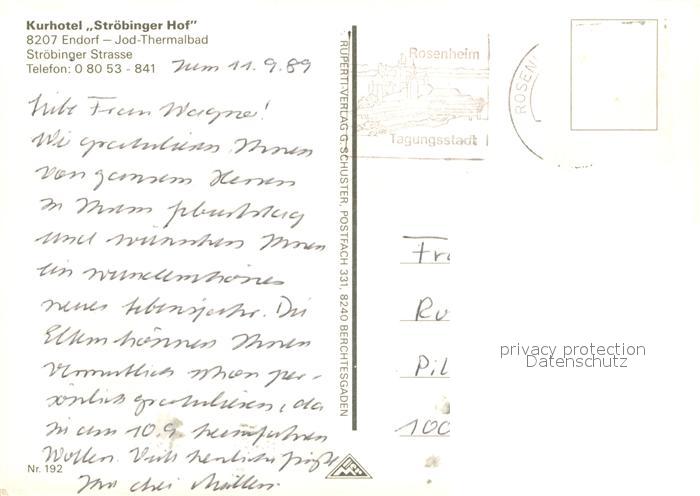 Kurhotel „Ströbinger Hof"
8207 Endorf – Jod-Thermalbad
Ströbinger Strasse
Telefon: 0 80 53 - 841
zum 11.9.89
Liebe Frau Wagner!
Wir gratulieren Ihnen
von ganzem Herzen
zu Ihrem Geburtstag
und wünschen Ihnen
ein wunderschönes
neues Lebensjahr. Die
Eltern können Ihnen
vermutlich schon per-
sönlich gratulieren, da
sie am 10.9. heimfahren
wollen. Viele herzliche Grüße
Ihre drei Müller.
Nr. 192
RUPERTI-VERLAG G. SCHUSTER, POSTFACH 331, 8240 BERCHTESGADEN
Rosenheim
Tagungsstadt
ROSEN
Fr
Ru
Pil
100
privacy protection
Datenschutz